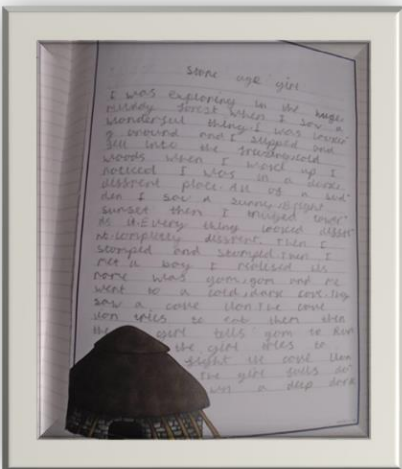 Stone age girl
I was exploring in the huge,
muddy forest when I saw a
wonderful thing. I was lookin
g around and I slipped and
fell into the freezing cold
woods when I waked up I
noticed I was in a
diffrent place. All of a sud
den I saw a sunny, bright
sunset then I
as it. Every thing looked
nt. completly diffrent. Then I
stomped and stomped. Then I
met a boy I realised his
name was gom, gom and me
went to a cold, dark cave. they
saw a cave lion the cave
lion tries to eat them then
the girl tells gom to Run
the girl tries to
fight the cave lion
The girl falls do
wn a deep dark